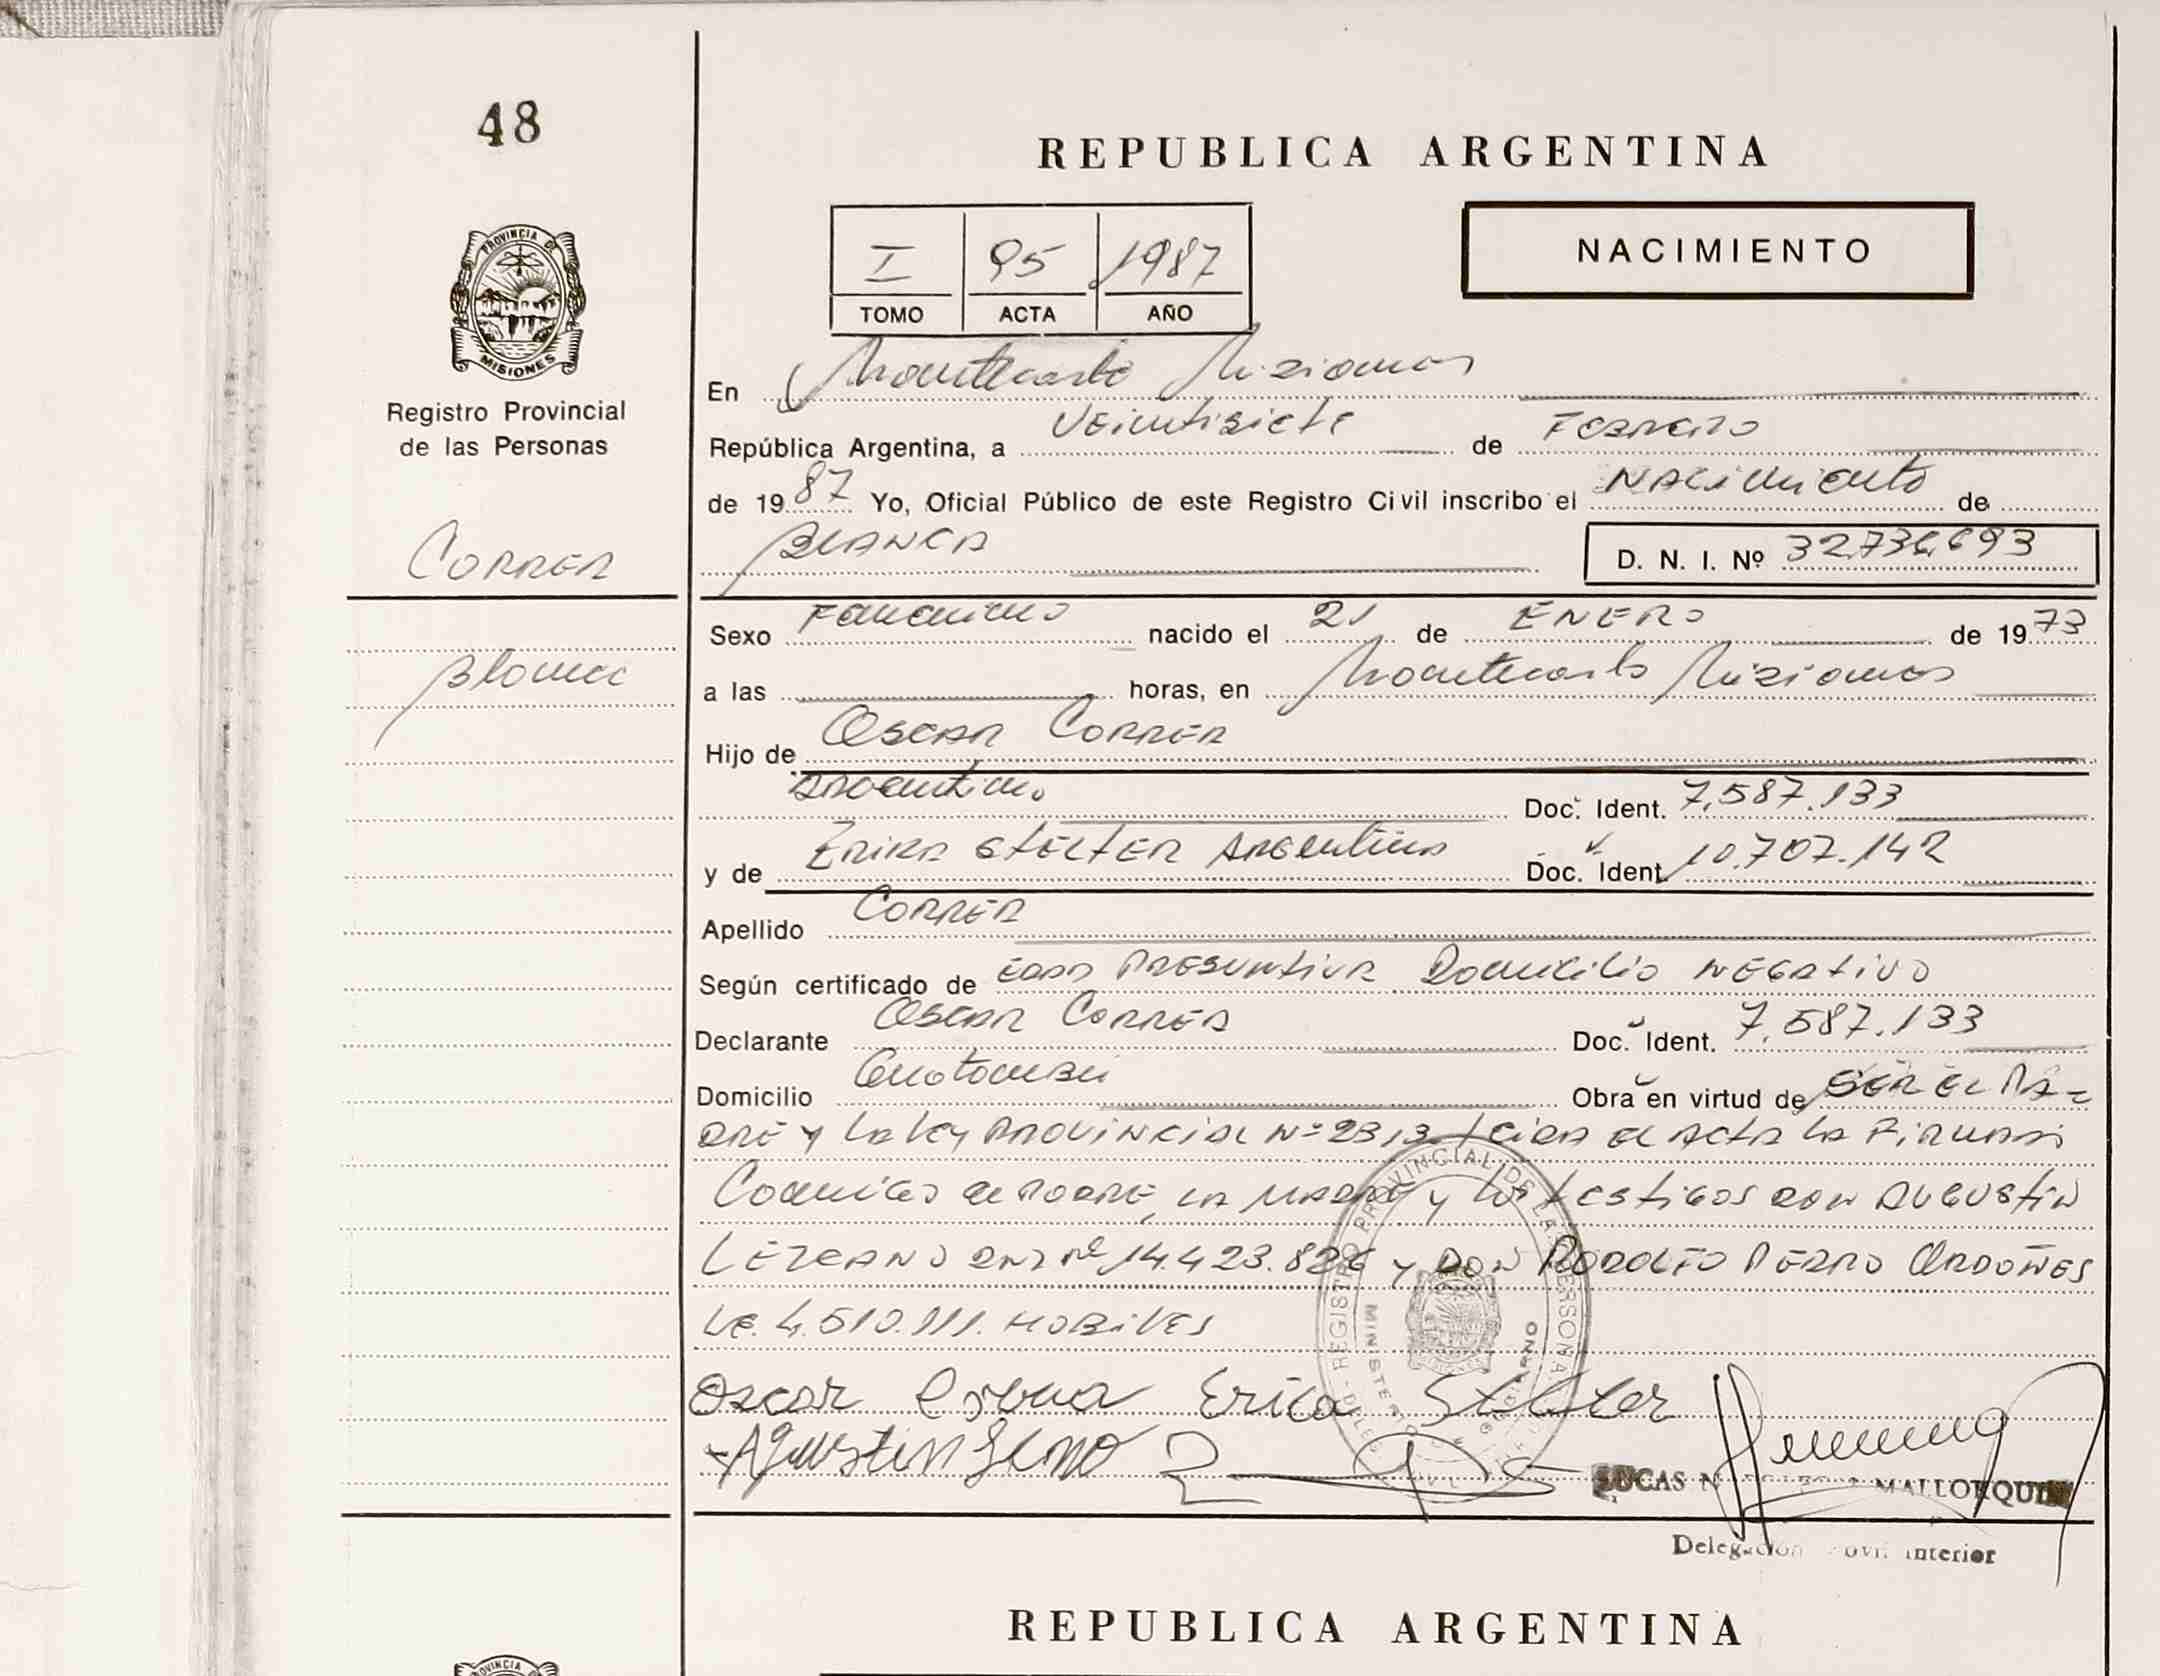 48
REPUBLICA ARGENTINA
PROVINCIA DE
MISIONES
Registro Provincial
de las Personas
I 95 1987
TOMO ACTA AÑO
NACIMIENTO
En Montecarlo Misiones
República Argentina, a Veintisiete de Febrero
de 1987 Yo, Oficial Público de este Registro Civil inscribo el Nacimiento de
CORREA
BLANCA D. N. I. Nº 32.736.693
Blanca
Sexo Femenino nacido el 21 de ENERO de 1973
a las horas, en Montecarlo Misiones
Hijo de OSCAR CORREA
Argentino Doc. Ident. 7.587.133
y de ERIKA STELTER Argentina Doc. Ident. 10.707.142
Apellido CORREA
Según certificado de EDAD PRESUNTIVA Domicilio NEGATIVO
Declarante OSCAR CORREA Doc. Ident. 7.587.133
Domicilio Obra en virtud de SER EL PA-
DRE y La Ley PROVINCIAL Nº 2313. Leida el Acta La Firman
Conmigo el PADRE, LA MADRE y los testigos DON AUGUSTIN
LEZCANO DNI Nº 14.423.826 y DON RODOLFO PEDRO ORDOÑES
LE. 4.510.111. HOBILES
Oscar Erica Stelter
Agustin
LUCAS MALLORQUIN
Delegación Movil Interior
REGISTRO PROVINCIAL DE LAS PERSONAS
MINISTERIO DE GOBIERNO
REPUBLICA ARGENTINA
PROVINCIA DE